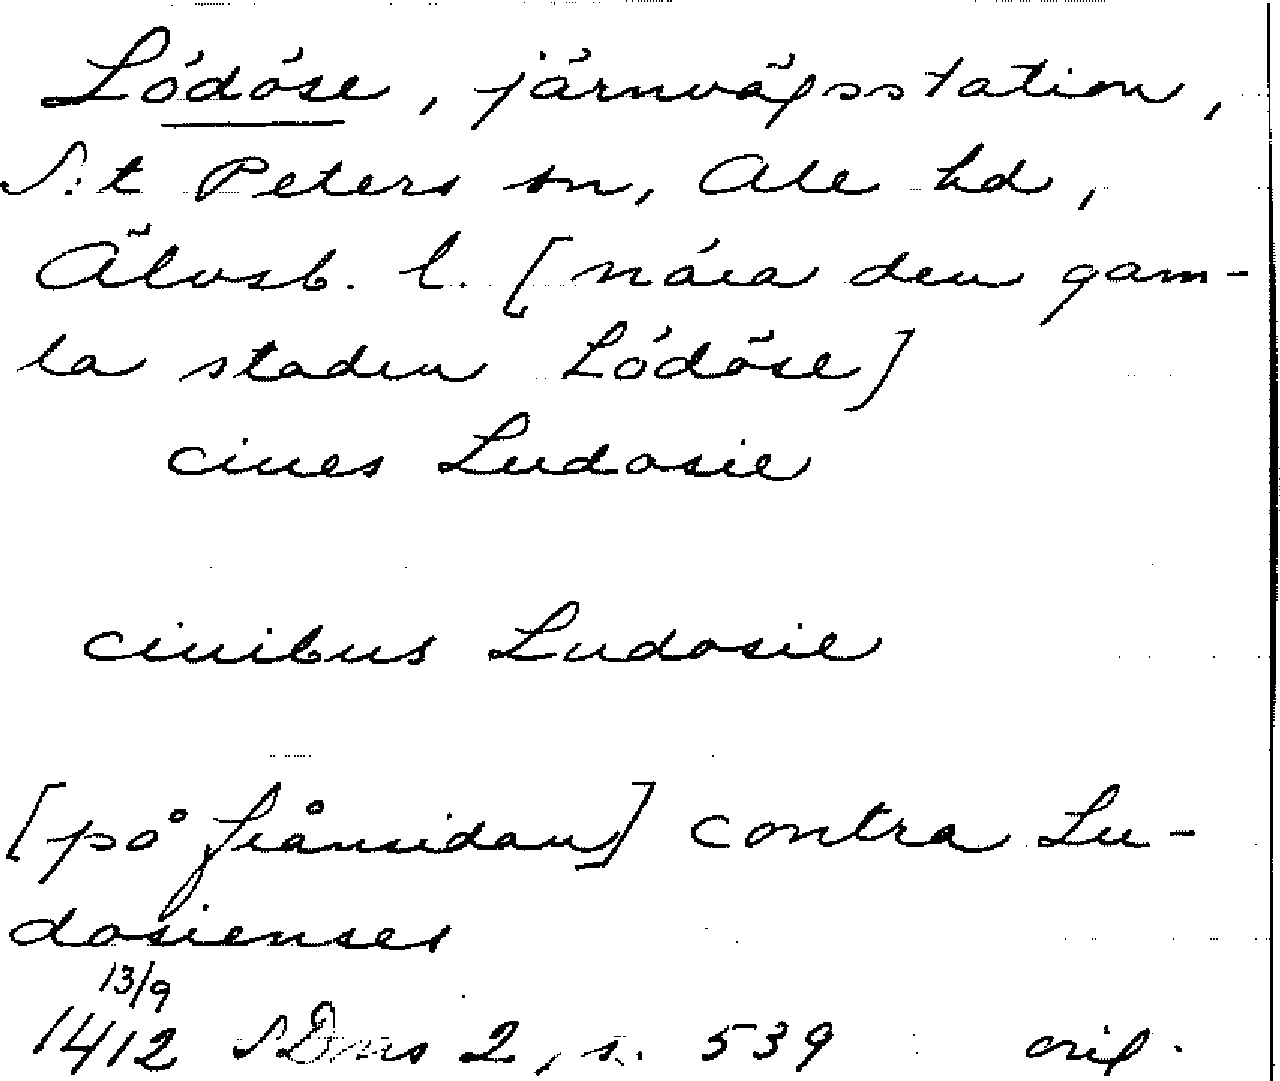 Lödöse, järnvägsstation,
S:t Peters sn, Ale hd,
Älvsb. l. [nära den gam-
la staden Lödöse]
ciues Ludosie
ciuibus Ludosie
[på frånsidan] contra Lu-
dosienses
13/9
1412 SDns 2, s. 539 orig.